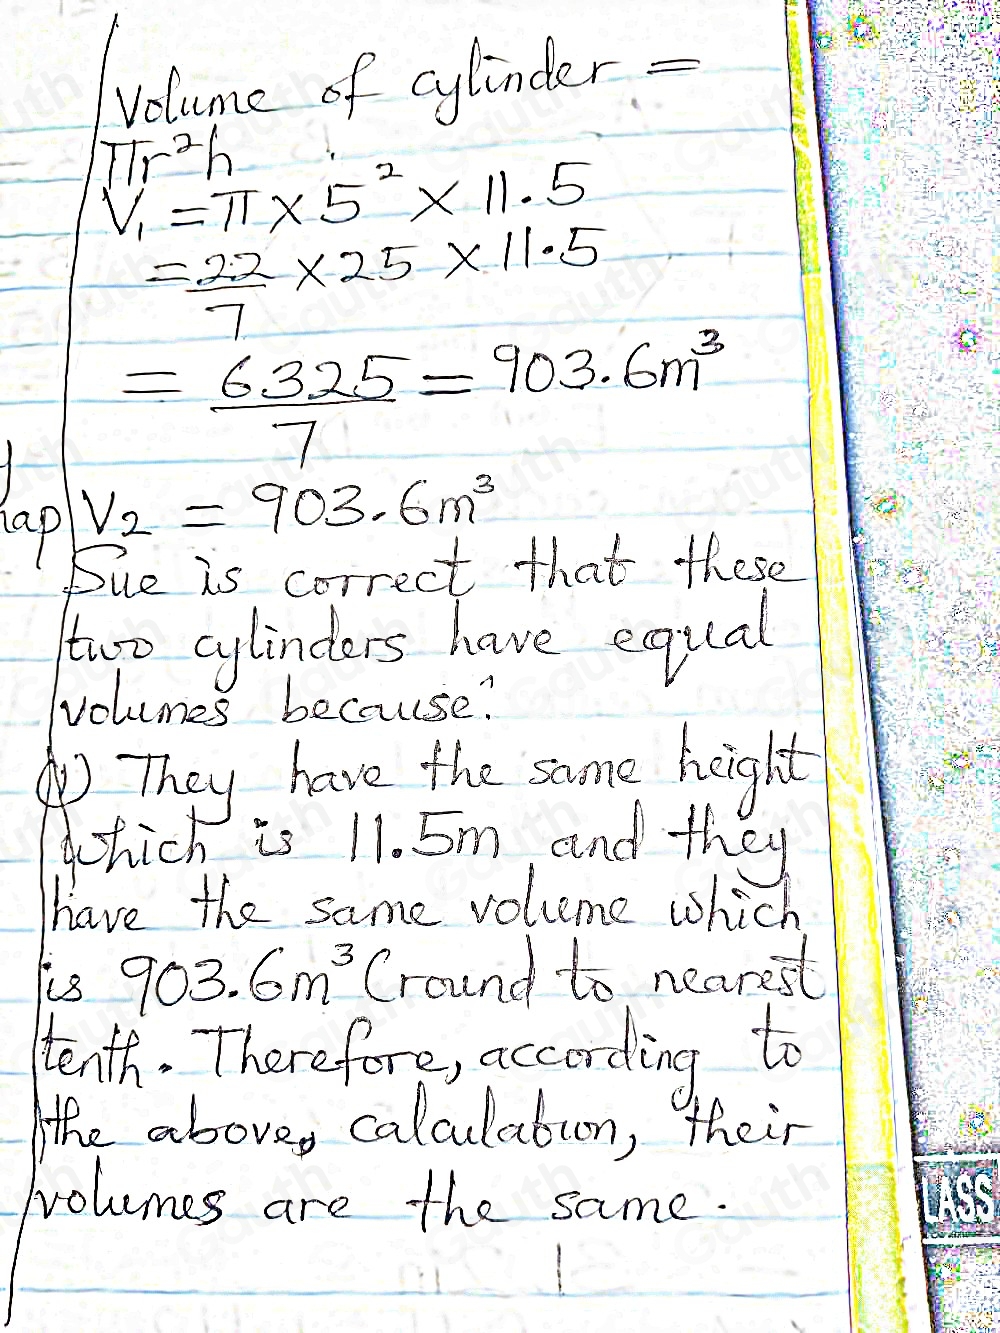 Volume of cylinder =
πr²h
V₁ = π × 5² × 11.5
= 22/7 × 25 × 11.5
= 6325/7 = 903.6m³
V₂ = 903.6m³
Sue is correct that these
two cylinders have equal
volumes because:
They have the same height
which is 11.5m and they
have the same volume which
is 903.6m³ (round to nearest
tenth. Therefore, according to
the above, calculation, their
volumes are the same.
LASS